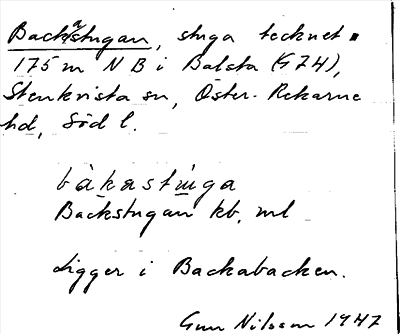 Backastugan, stuga tecknet
175 m N B i Balsta (G74),
Stenkvista sn, Öster-Rekarne
hd, Söd l.
bàkastúga
Backstugan kb, ml
Ligger i Backabacken.
Gun Nilsson 1947